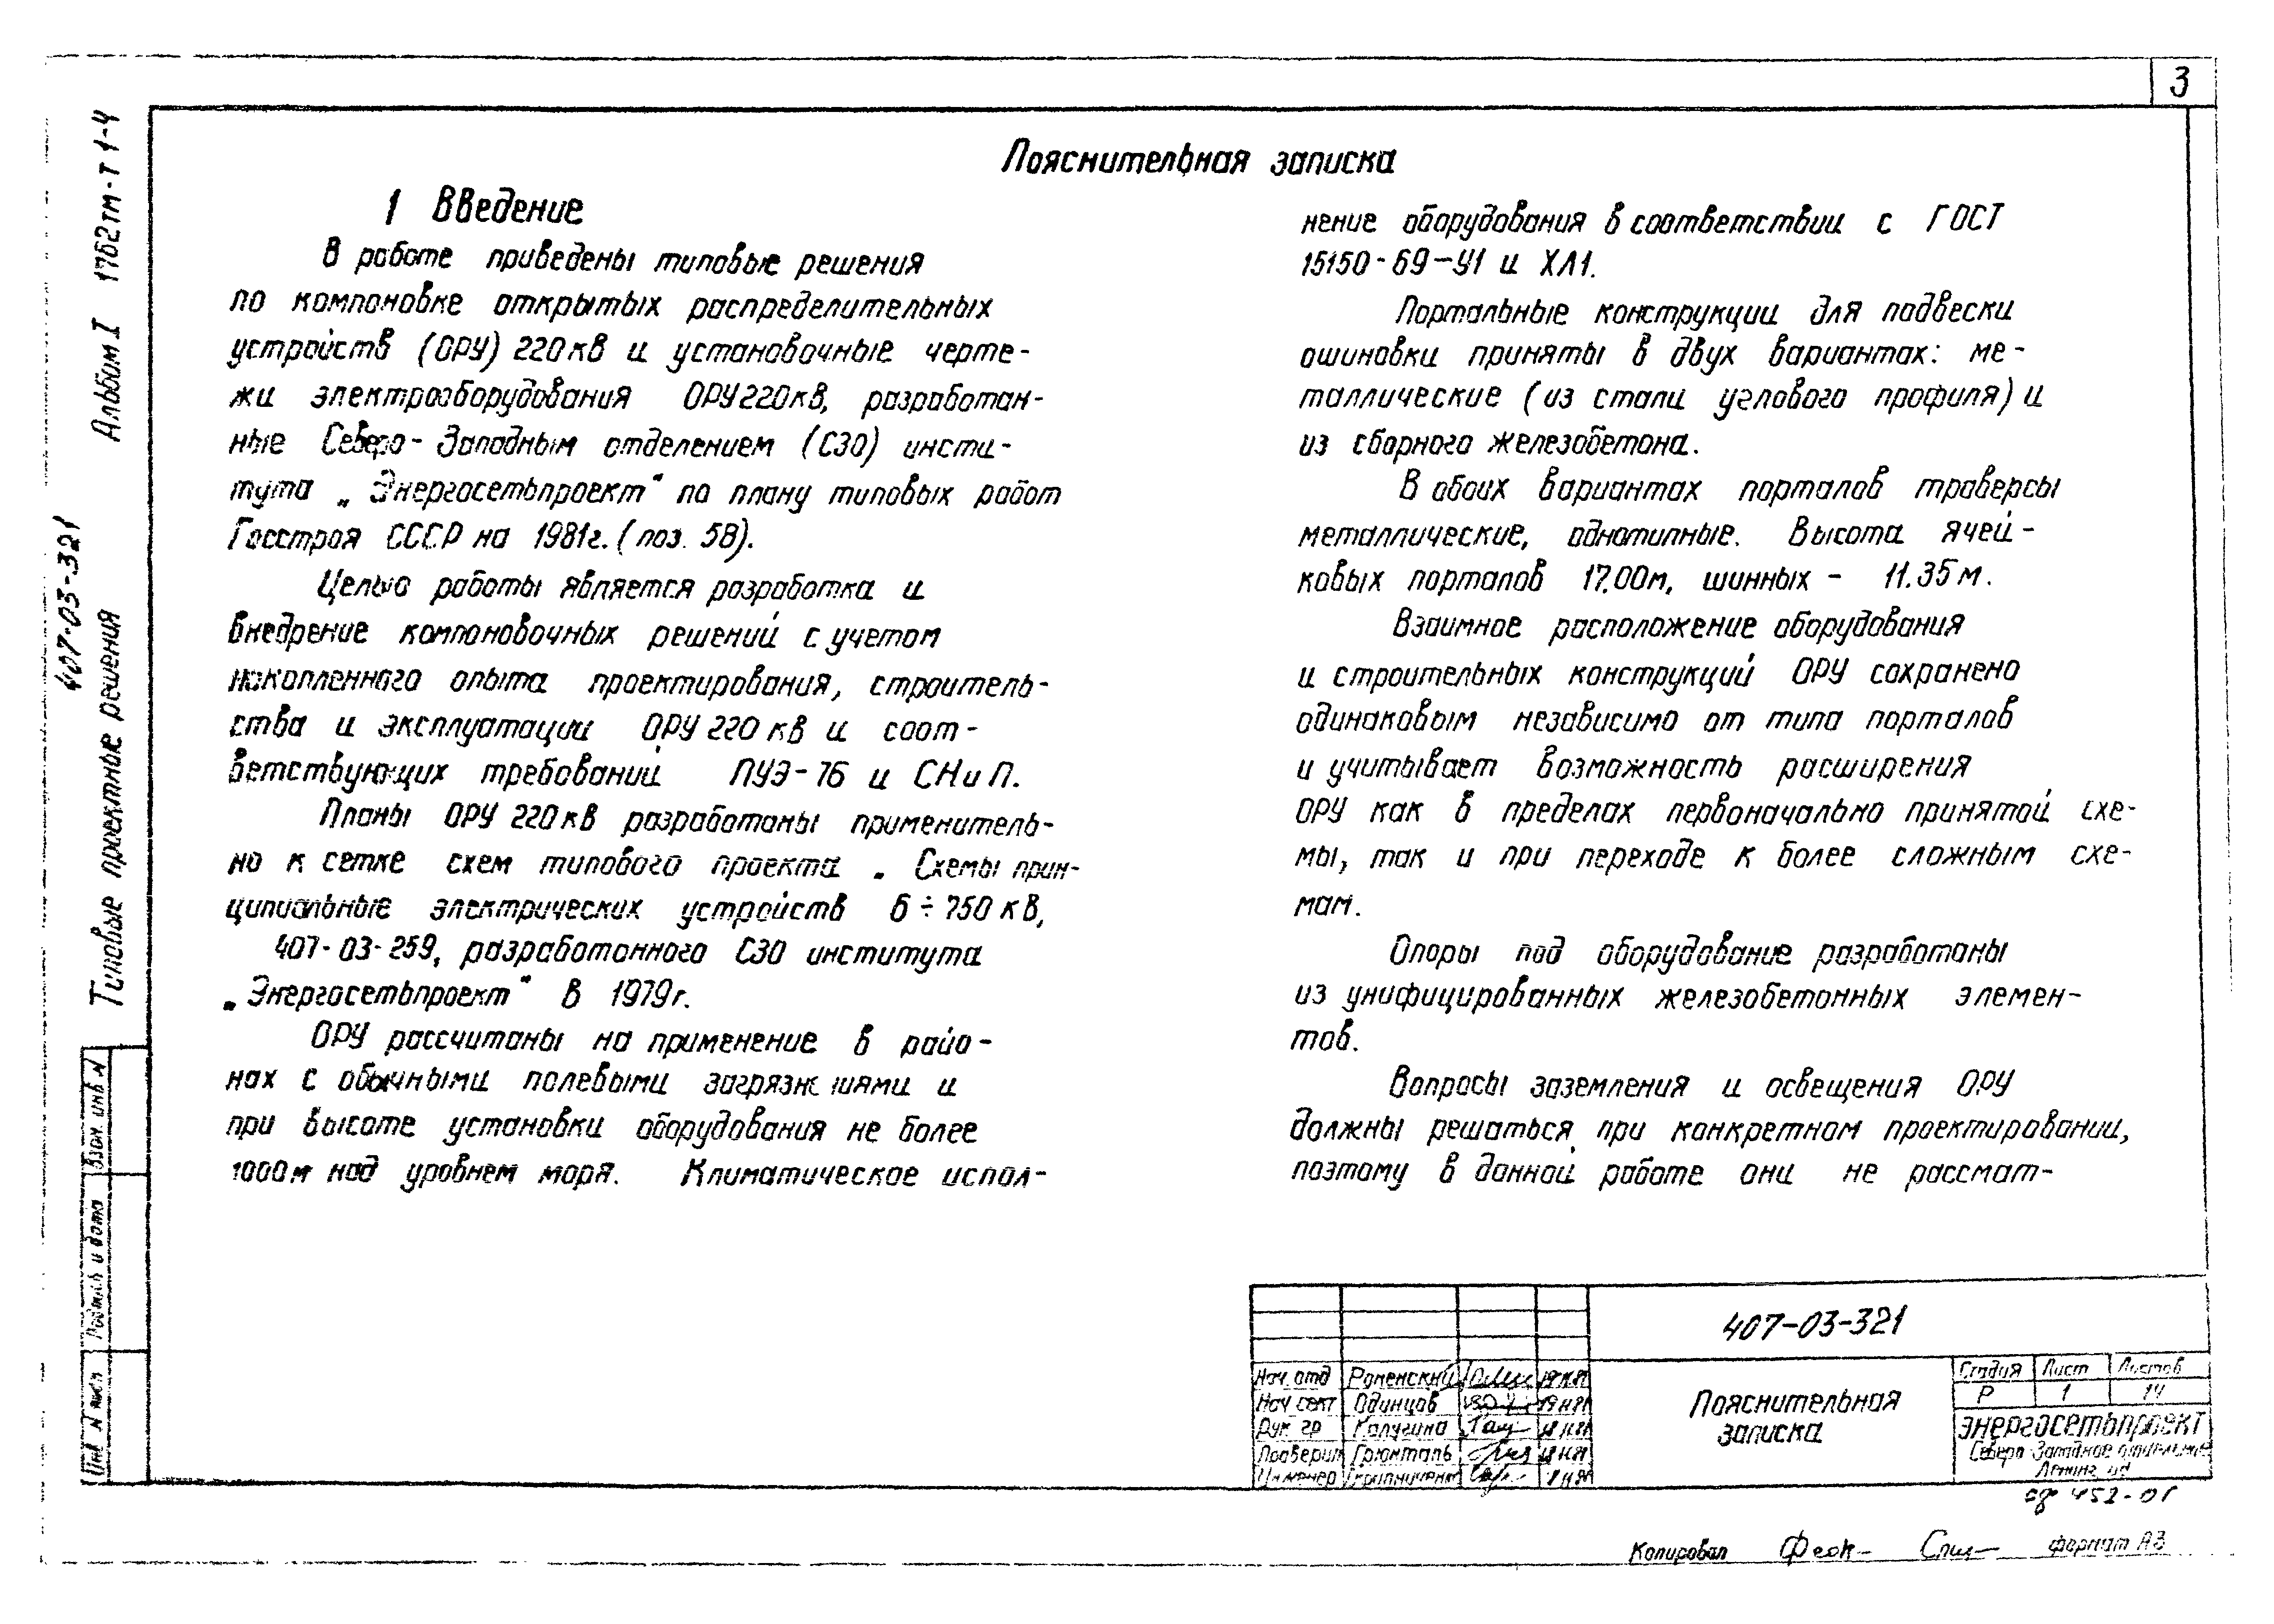 3
Пояснительная записка
1 Введение
В работе приведены типовые решения
по компоновке открытых распределительных
устройств (ОРУ) 220кВ и установочные черте-
жи электрооборудования ОРУ 220кВ, разработан-
ные Северо-Западным отделением (СЗО) инсти-
тута „Энергосетьпроект" по плану типовых работ
Госстроя СССР на 1981г. (поз. 58).
Целью работы является разработка и
внедрение компоновочных решений с учетом
накопленного опыта проектирования, строитель-
ства и эксплуатации ОРУ 220 кВ и соот-
ветствующих требований ПУЭ-76 и СНиП.
Планы ОРУ 220кВ разработаны применитель-
но к сетке схем типового проекта „ Схемы прин-
ципиальные электрических устройств 6÷750 кВ,
407-03-259, разработанного СЗО института
„Энергосетьпроект" в 1979г.
ОРУ рассчитаны на применение в райо-
нах с обычными полевыми загрязнениями и
при высоте установки оборудования не более
1000м над уровнем моря. Климатическое испол-
нение оборудования в соответствии с ГОСТ
15150-69-У1 и ХЛ1.
Портальные конструкции для подвески
ошиновки приняты в двух вариантах: ме-
таллические (из стали углового профиля) и
из сборного железобетона.
В обоих вариантах порталов траверсы
металлические, однотипные. Высота ячей-
ковых порталов 17.00м, шинных - 11.35м.
Взаимное расположение оборудования
и строительных конструкций ОРУ сохранено
одинаковым независимо от типа порталов
и учитывает возможность расширения
ОРУ как в пределах первоначально принятой схе-
мы, так и при переходе к более сложным схе-
мам.
Опоры под оборудование разработаны
из унифицированных железобетонных элемен-
тов.
Вопросы заземления и освещения ОРУ
должны решаться при конкретном проектировании,
поэтому в данной работе они не рассмат-
407-03-321
Типовые проектные решения Альбом I 1762тм-т 1-4
Взам. инв N
Подпись и дата
Инв. N подл
407-03-321
Нач. отд Роменский
Нач сект Одинцов
Рук. гр Калугина
Проверил Грюнталь
Инженер
Пояснительная
записка
Стадия Лист Листов
Р 1 14
ЭНЕРГОСЕТЬПРОЕКТ
Северо-Западное отделение
Ленинград
сф 452-01
Копировал формат А3